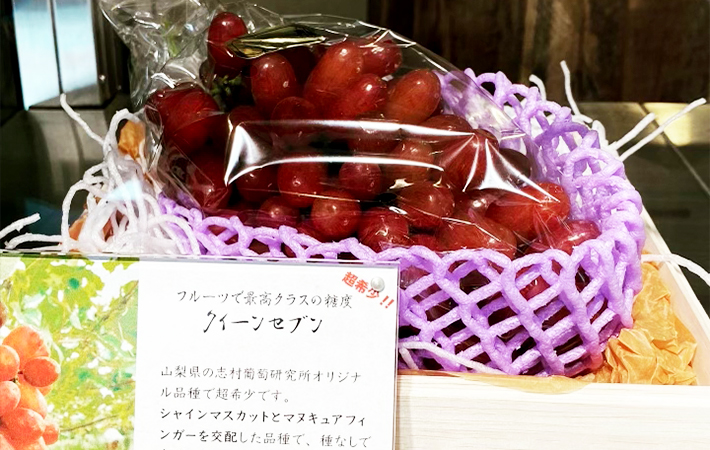 超希少!!
フルーツで最高クラスの糖度
クイーンセブン
山梨県の志村葡萄研究所オリジナ
ル品種で超希少です。
シャインマスカットとマヌキュアフィ
ンガーを交配した品種で、種なしで